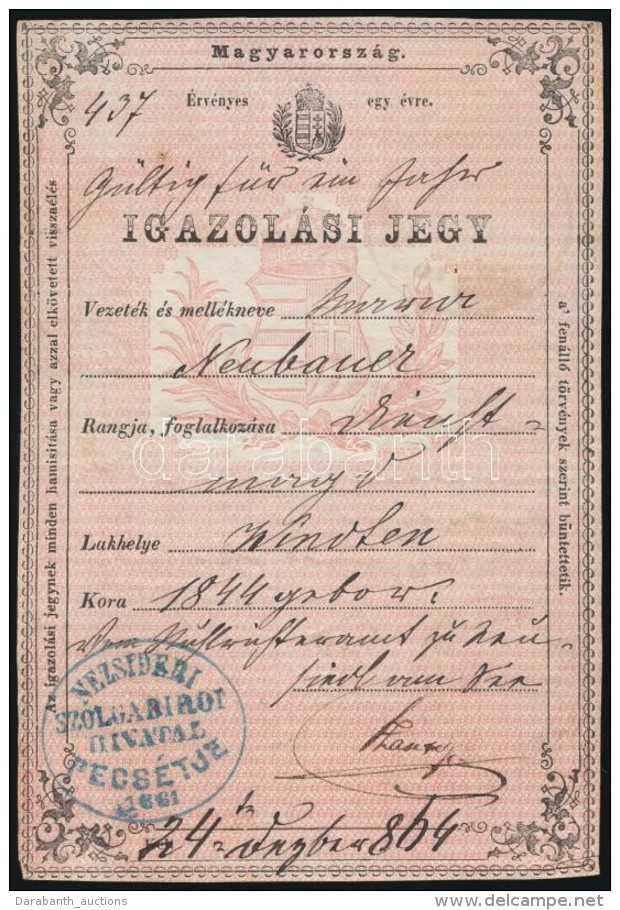 Magyarország.
437 Érvényes egy évre.
Gültig für ein Jahr
IGAZOLÁSI JEGY
Vezeték és mellékneve Maria
Neubauer
Rangja, foglalkozása Dienst=
magd
Lakhelye Windten
Kora 1844 gebor.
Vom Stuhlrichteramt zu Neu=
siedl am See
NEZSIDERI
SZOLGABIROI
HIVATAL
PECSÉTJE
1861
24 = Dezber 864
Az igazolási jegynek minden hamisitása vagy azzal elkövetett visszaélés
a' fenálló törvények szerint büntettetik.
databanth
Darabanth_auctions
delcampe.net